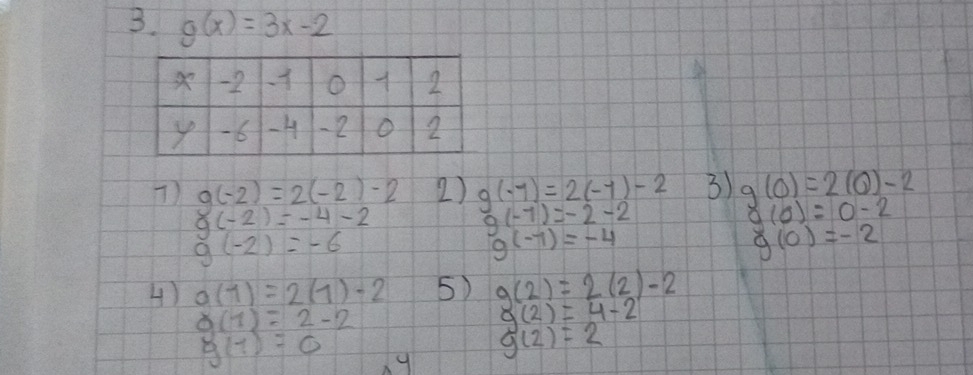 3. g(x) = 3x - 2
x -2 -1 0 1 2
y -6 -4 -2 0 2
1) g(-2) = 2(-2) - 2
g(-2) = -4 - 2
g(-2) = -6
2) g(-1) = 2(-1) - 2
g(-1) = -2 - 2
g(-1) = -4
3) g(0) = 2(0) - 2
g(0) = 0 - 2
g(0) = -2
4) g(1) = 2(1) - 2
g(1) = 2 - 2
g(1) = 0
5) g(2) = 2(2) - 2
g(2) = 4 - 2
g(2) = 2
y